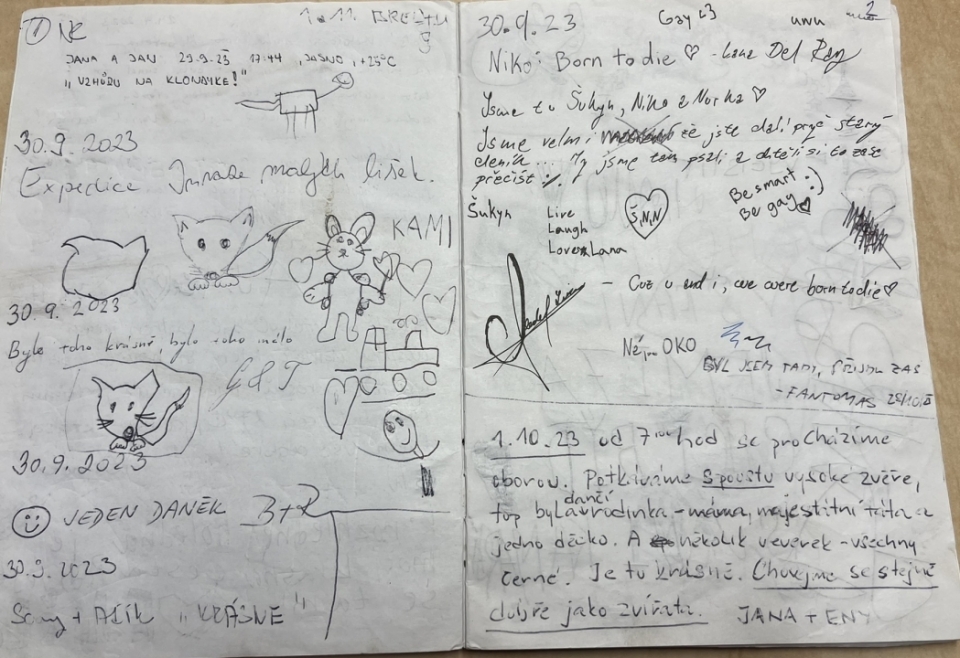 ① NK
1. 11. BRETU
9
JANA A JAN 29.9.23 17:44, JASNO, +25°C
„VZHŮRU NA KLONDYKE!"
30.9. 2023
Expedice malých lišek.
KAMI
30.9. 2023
Bylo toho krásně, bylo toho málo
G&T
30.9. 2023
JEDEN DANĚK B+R
30.9. 2023
„KRÁSNE"
30.9.23 Gay <3 unu 2
Niko: Born to die ♡ - Lana Del Rey
Jsme tu Šukyn, Niko a Norka ♡
Jsme velmi že jste dali pryč starý
deník ... My jsme tam psali a chtěli si to zase
přečíst :/.
Be smart :)
Be gay ♡
Šukyn
Live
Laugh
Love Lana
Š,N,N
- Cuz u and i, we were born to die ♡
OKO
BYL JSEM TADY, PŘIJDU ZAS
- FANTOMAS
1.10.23 od 7 hod se procházíme
oborou. Potkáváme spoustu vysoké zvěře,
top byla dančí rodinka - máma, majestátní táta a
jedno děcko. A několik veverek - všechny
černé. Je tu krásně. Chovejme se stejně
dobře jako zvířata. JANA + ENY